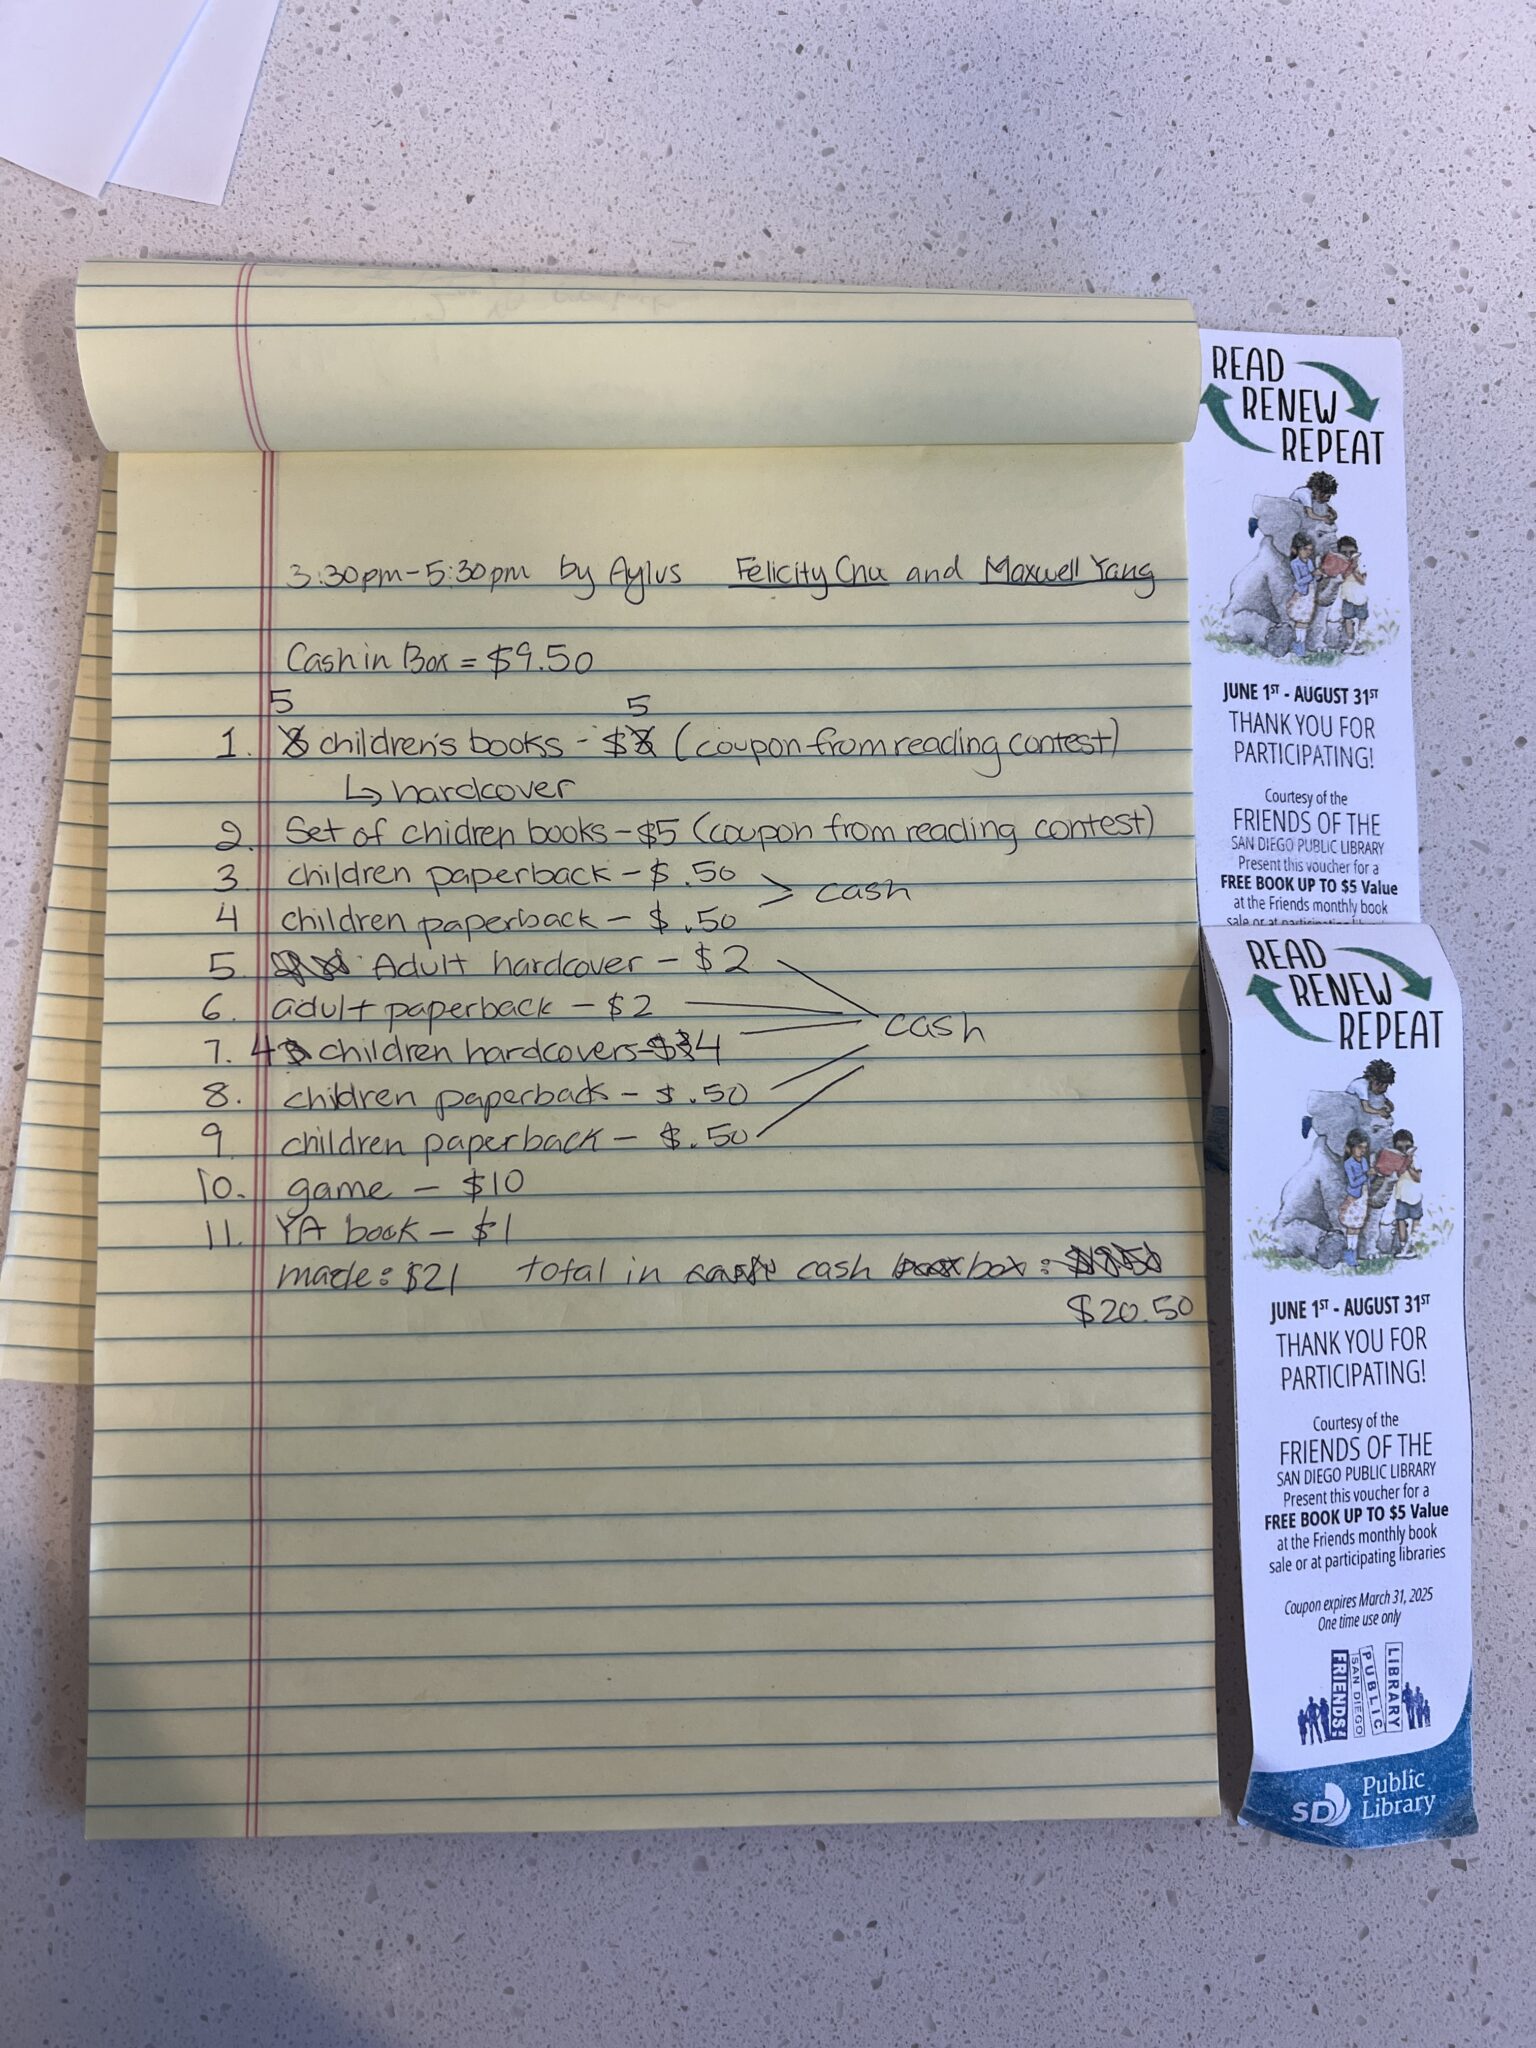 3:30pm-5:30pm by Aylus Felicity Chu and Maxwell Yang
Cash in Box = $9.50
5 5
1. children's books - $ (coupon from reading contest)
↳ hardcover
2. Set of chidren books - $5 (coupon from reading contest)
3 children paperback - $.50
> cash
4 children paperback - $.50
5. Adult hardcover - $2
6. adult paperback - $2
cash
7. 4 children hardcovers - $4
8. children paperback - $.50
9. children paperback - $.50
10. game - $10
11. YA book - $1
made: $21 total in cash box:
$20.50
READ
RENEW
REPEAT
JUNE 1ST - AUGUST 31ST
THANK YOU FOR
PARTICIPATING!
Courtesy of the
FRIENDS OF THE
SAN DIEGO PUBLIC LIBRARY
Present this voucher for a
FREE BOOK UP TO $5 Value
at the Friends monthly book
sale or at participating
READ
RENEW
REPEAT
JUNE 1ST - AUGUST 31ST
THANK YOU FOR
PARTICIPATING!
Courtesy of the
FRIENDS OF THE
SAN DIEGO PUBLIC LIBRARY
Present this voucher for a
FREE BOOK UP TO $5 Value
at the Friends monthly book
sale or at participating libraries
Coupon expires March 31, 2025
One time use only
FRIENDS!
SAN DIEGO
PUBLIC
LIBRARY
SD Public
Library